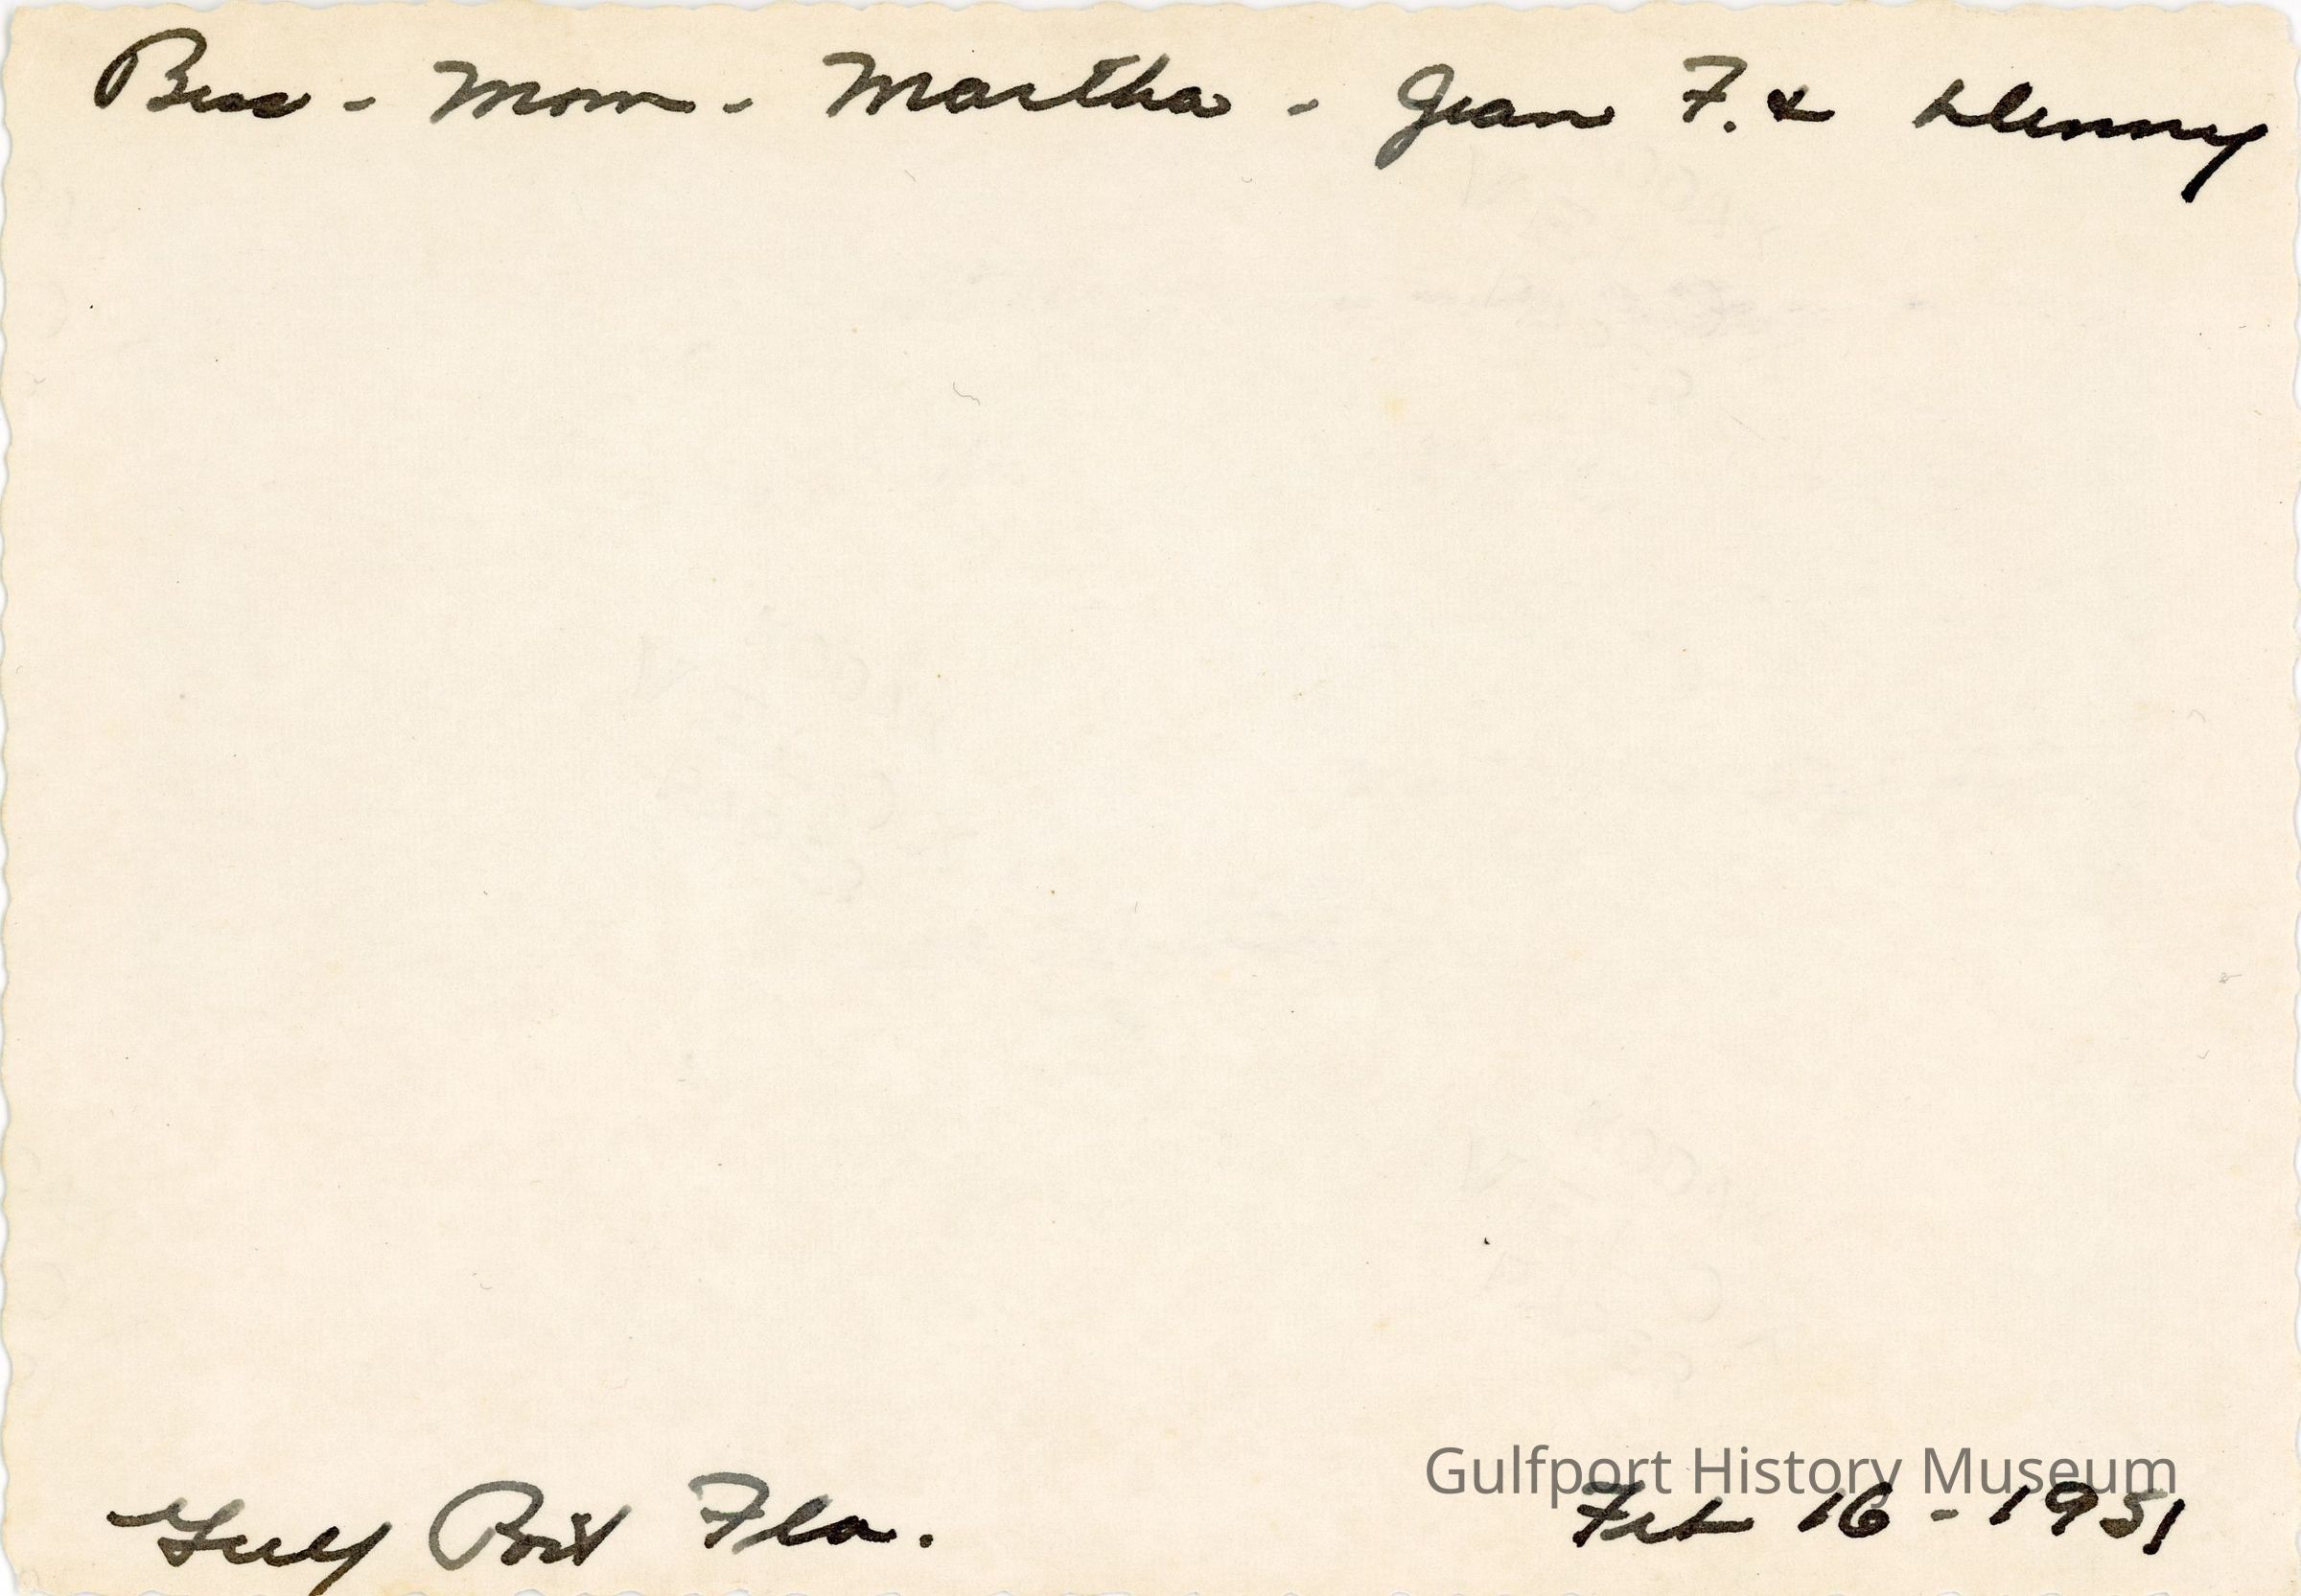 Bess - Mom - Martha - Jean F. & Denny
Gulfport History Museum
Gulf Port Fla.
Feb 16 - 1951